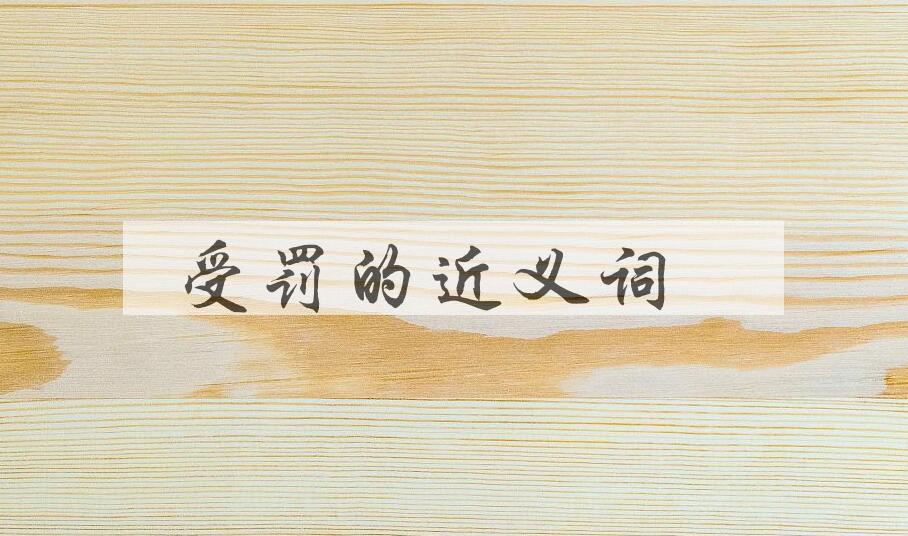 受罚的近义词